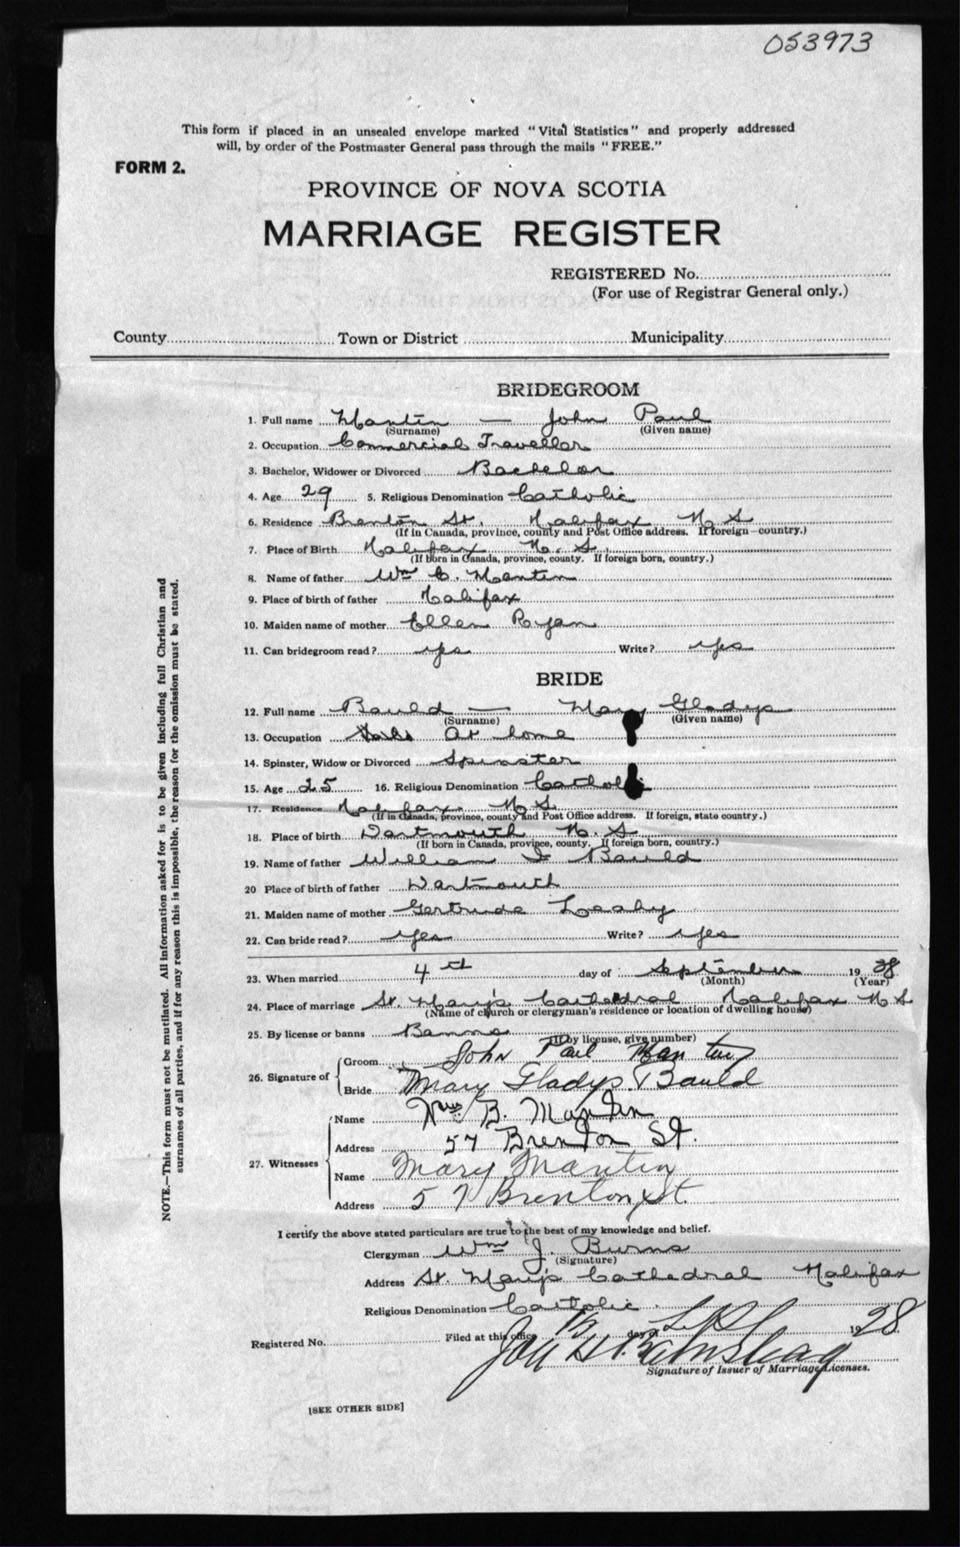 053973
This form if placed in an unsealed envelope marked "Vital Statistics" and properly addressed
will, by order of the Postmaster General pass through the mails "FREE."
FORM 2.
PROVINCE OF NOVA SCOTIA
MARRIAGE REGISTER
REGISTERED No.
(For use of Registrar General only.)
County Town or District Municipality
BRIDEGROOM
1. Full name Mantin — John Paul
(Surname) (Given name)
2. Occupation Commercial Traveller
3. Bachelor, Widower or Divorced Bachelor
4. Age 29 5. Religious Denomination Catholic
6. Residence Brenton St. Halifax N S
(If in Canada, province, county and Post Office address. If foreign—country.)
7. Place of Birth Halifax N. S.
(If born in Canada, province, county. If foreign born, country.)
8. Name of father Wm C. Mantin
9. Place of birth of father Halifax
10. Maiden name of mother Ellen Ryan
11. Can bridegroom read? yes Write? yes
BRIDE
12. Full name Bauld — Mary Gladys
(Surname) (Given name)
13. Occupation At home
14. Spinster, Widow or Divorced Spinster
15. Age 25 16. Religious Denomination Catholic
17. Residence Halifax N S.
(If in Canada, province, county and Post Office address. If foreign, state country.)
18. Place of birth Dartmouth N. S
(If born in Canada, province, county. If foreign born, country.)
19. Name of father William Bauld
20 Place of birth of father Dartmouth
21. Maiden name of mother Gertrude Leahy
22. Can bride read? yes Write? yes
23. When married 4th day of September 1928
(Month) (Year)
24. Place of marriage St. Mary's Cathedral Halifax N S
(Name of church or clergyman's residence or location of dwelling house)
25. By license or banns Banns
(If by license, give number)
26. Signature of Groom John Paul Mantin
Bride Mary Gladys Bauld
27. Witnesses Name B. Mantin
Address 57 Brenton St.
Name Mary Mantin
Address 57 Brenton St.
I certify the above stated particulars are true to the best of my knowledge and belief.
Clergyman Wm J. Burns
(Signature)
Address St. Mary's Cathedral Halifax
Religious Denomination Catholic
Registered No. Filed at this office day of 1928
Signature of Issuer of Marriage Licenses.
[SEE OTHER SIDE]
NOTE.—This form must not be mutilated. All information asked for is to be given including full Christian and
surnames of all parties, and if for any reason this is impossible, the reason for the omission must be stated.